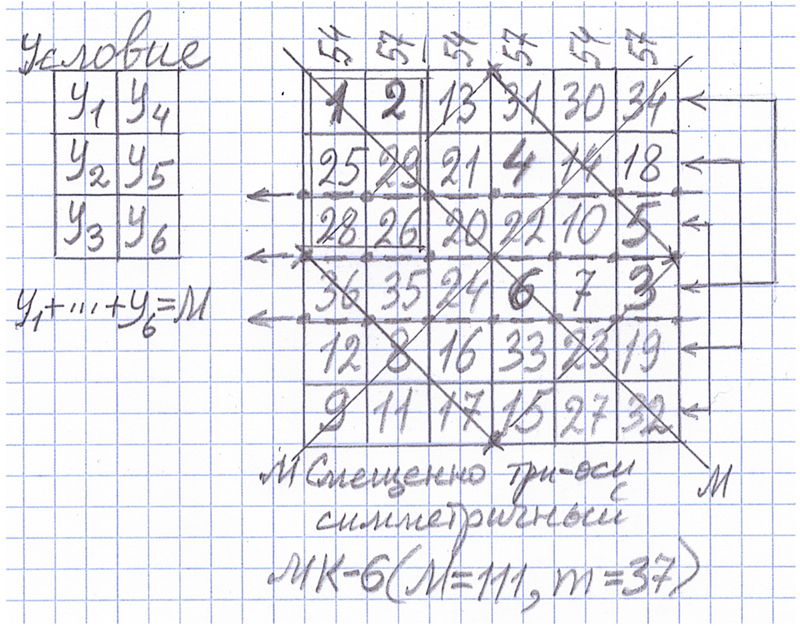 Условие
У1 У4
У2 У5
У3 У6
У1+...+У6=М
54 57 54 57 54 57
1 2 13 31 30 34
25 29 21 4 14 18
28 26 20 22 10 5
36 35 24 6 7 3
12 8 16 33 23 19
9 11 17 15 27 32
М М
Смещенно три-оси
симметричный
МК-6(М=111, m=37)